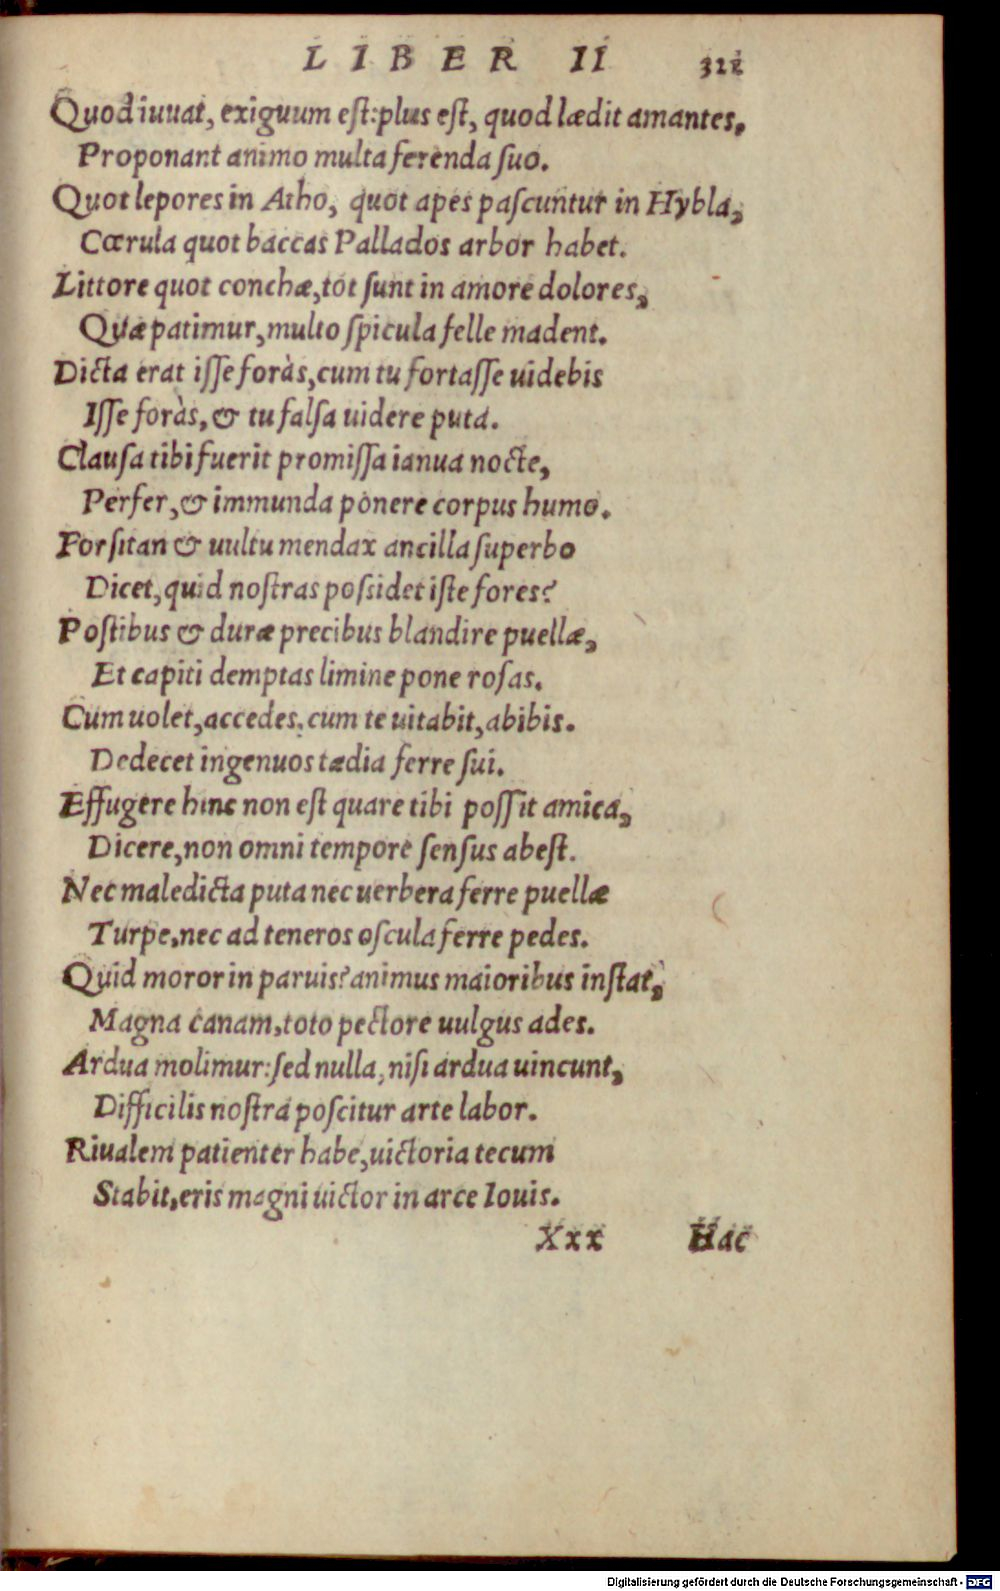 LIBER II 312
Quod iuuat, exiguum eſt: plus eſt, quod lædit amantes,
Proponant animo multa ferenda ſuo.
Quot lepores in Atho, quot apes paſcuntur in Hybla,
Cœrula quot baccas Pallados arbor habet.
Littore quot conchæ, tot ſunt in amore dolores,
Quæ patimur, multo ſpicula felle madent.
Dicta erat iſſe foràs, cum tu fortaſſe uidebis
Iſſe foràs, & tu falſa uidere puta.
Clauſa tibi fuerit promiſſa ianua nocte,
Perfer, & immunda ponere corpus humo.
Forſitan & uultu mendax ancilla ſuperbo
Dicet, quid noſtras poſsidet iſte fores?
Poſtibus & duræ precibus blandire puellæ,
Et capiti demptas limine pone roſas.
Cum uolet, accedes: cum te uitabit, abibis.
Dedecet ingenuos tædia ferre ſui.
Effugere hinc non eſt quare tibi poſſit amica,
Dicere, non omni tempore ſenſus abeſt.
Nec maledicta puta nec uerbera ferre puellæ
Turpe, nec ad teneros oſcula ferre pedes.
Quid moror in paruis? animus maioribus inſtat,
Magna canam, toto pectore uulgus ades.
Ardua molimur: ſed nulla, niſi ardua uincunt,
Difficilis noſtra poſcitur arte labor.
Riualem patienter habe, uictoria tecum
Stabit, eris magni uictor in arce Iouis.
Xxx Hac
Digitalisierung gefördert durch die Deutsche Forschungsgemeinschaft - DFG